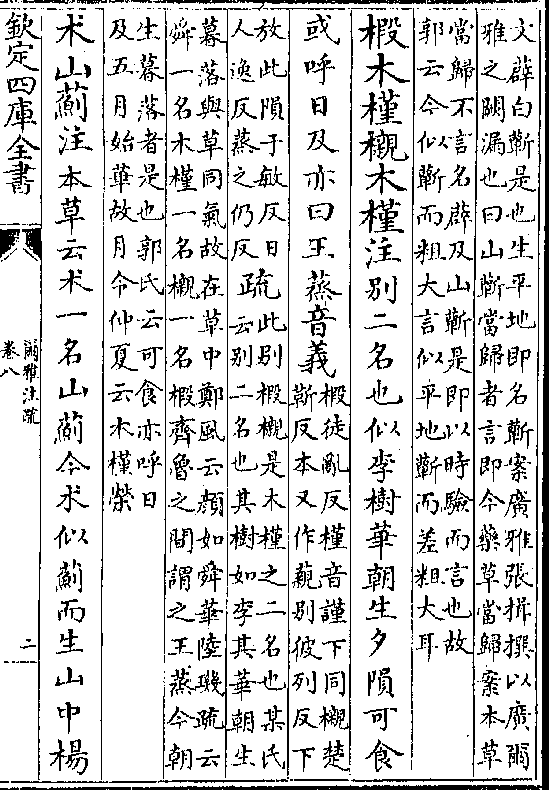 文薜白蘄是也生平地即名蘄案廣雅張揖撰以廣爾
雅之闕漏也曰山蘄當歸者言即今藥草當歸案本草
當歸不言名薜及山蘄是即以時驗而言也故
郭云今似蘄而粗大言似平地蘄而差粗大耳
椴木槿櫬木槿注别二名也似李樹華朝生夕隕可食
或呼日及亦曰王蒸音義
椴徒亂反槿音謹下同櫬楚
靳反本又作藽别彼列反下
放此隕于敏反日
人逸反蒸之仍反
疏
此别椴櫬是木槿之二名也某氏
云别二名也其樹如李其華朝生
暮落與草同氣故在草中鄭風云顔如舜華陸璣疏云
舜一名木槿一名櫬一名椴齊魯之間謂之王蒸今朝
生暮落者是也郭氏云可食亦呼日
及五月始華故月令仲夏云木槿榮
术山薊注本草云术一名山薊今术似薊而生山中楊
欽定四庫全書
爾雅注疏
卷八
二